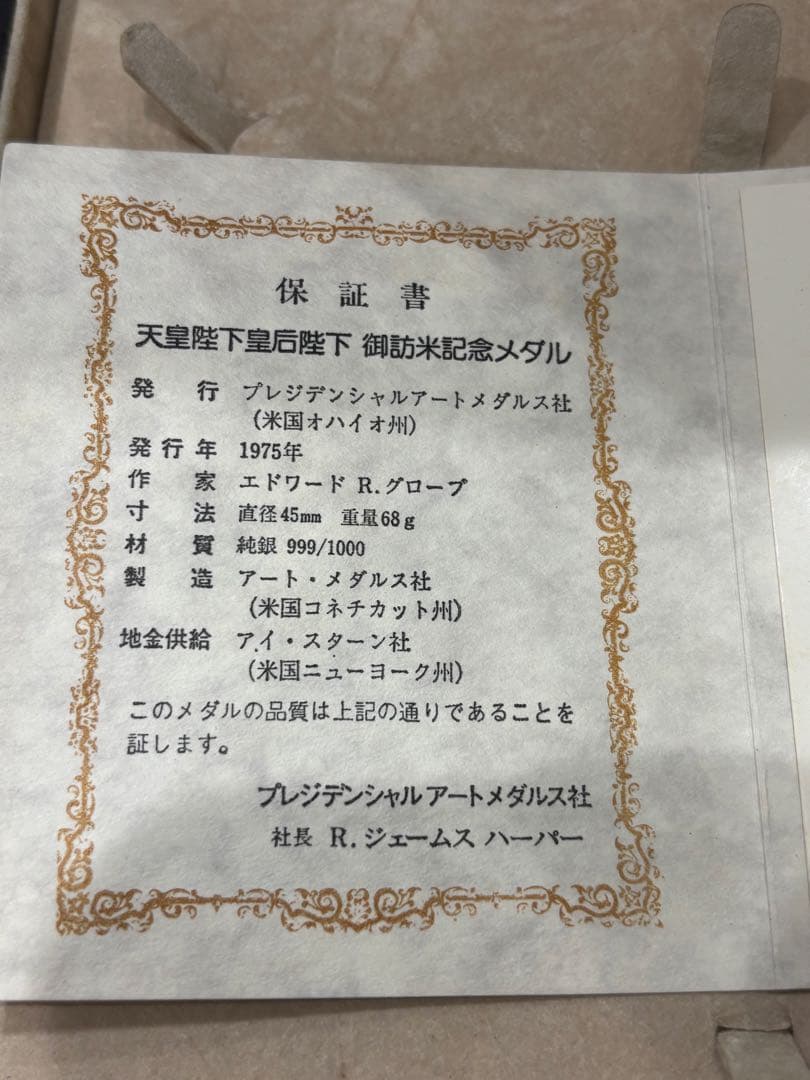 保証書
天皇陛下皇后陛下 御訪米記念メダル
発行 プレジデンシャルアートメダルス社
(米国オハイオ州)
発行年 1975年
作家 エドワード R.グローブ
寸法 直径45mm 重量68g
材質 純銀 999/1000
製造 アート・メダルス社
(米国コネチカット州)
地金供給 アイ・スターン社
(米国ニューヨーク州)
このメダルの品質は上記の通りであることを
証します。
プレジデンシャル アートメダルス社
社長 R.ジェームス ハーパー